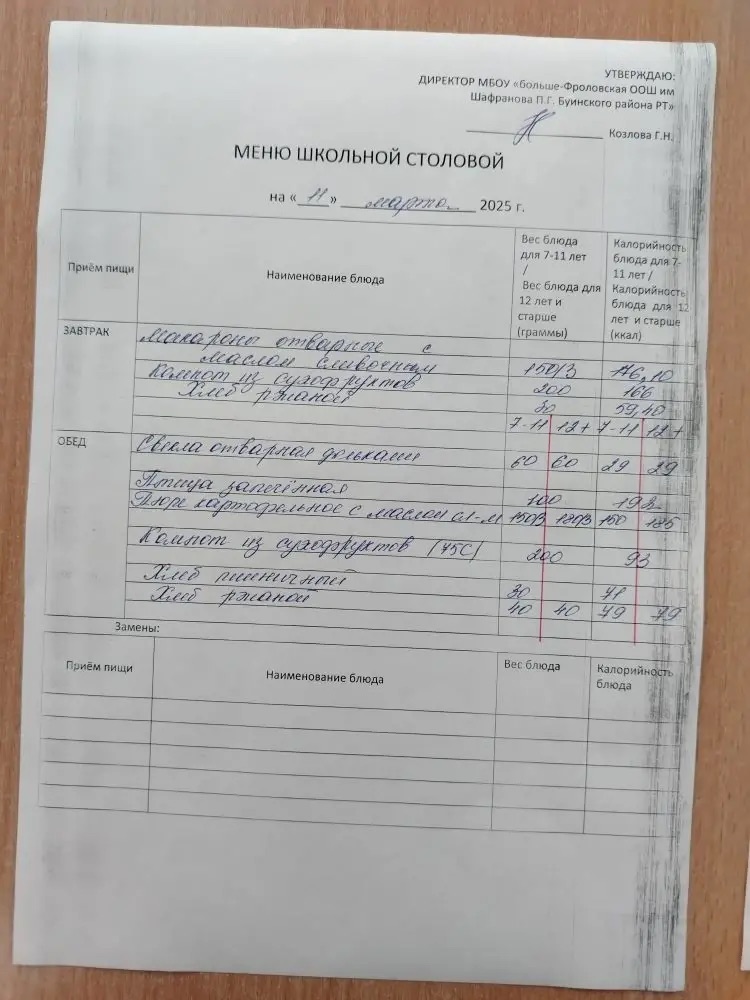 УТВЕРЖДАЮ:
ДИРЕКТОР МБОУ «больше-Фроловская ООШ им
Шафранова П.Г. Буинского района РТ»
Козлова Г.Н.
МЕНЮ ШКОЛЬНОЙ СТОЛОВОЙ
на «11» марта 2025 г.
Приём пищи
Наименование блюда
Вес блюда
для 7-11 лет
/
Вес блюда для
12 лет и
старше
(граммы)
Калорийность
блюда для 7-
11 лет /
Калорийность
блюда для 12
лет и старше
(ккал)
ЗАВТРАК
Макароны отварные с
маслом сливочным 150/3 176,10
Компот из сухофруктов 200 166
Хлеб ржаной 30 59,40
7-11 12+ 7-11 12+
ОБЕД
Свекла отварная дольками 60 60 29 29
Птица запечённая 100 192
Пюре картофельное с маслом сл-м 150/3 180/3 150
Компот из сухофруктов (75С) 200 93
Хлеб пшеничный 30 71
Хлеб ржаной 40 40 79 79
Замены:
Приём пищи
Наименование блюда
Вес блюда
Калорийность
блюда